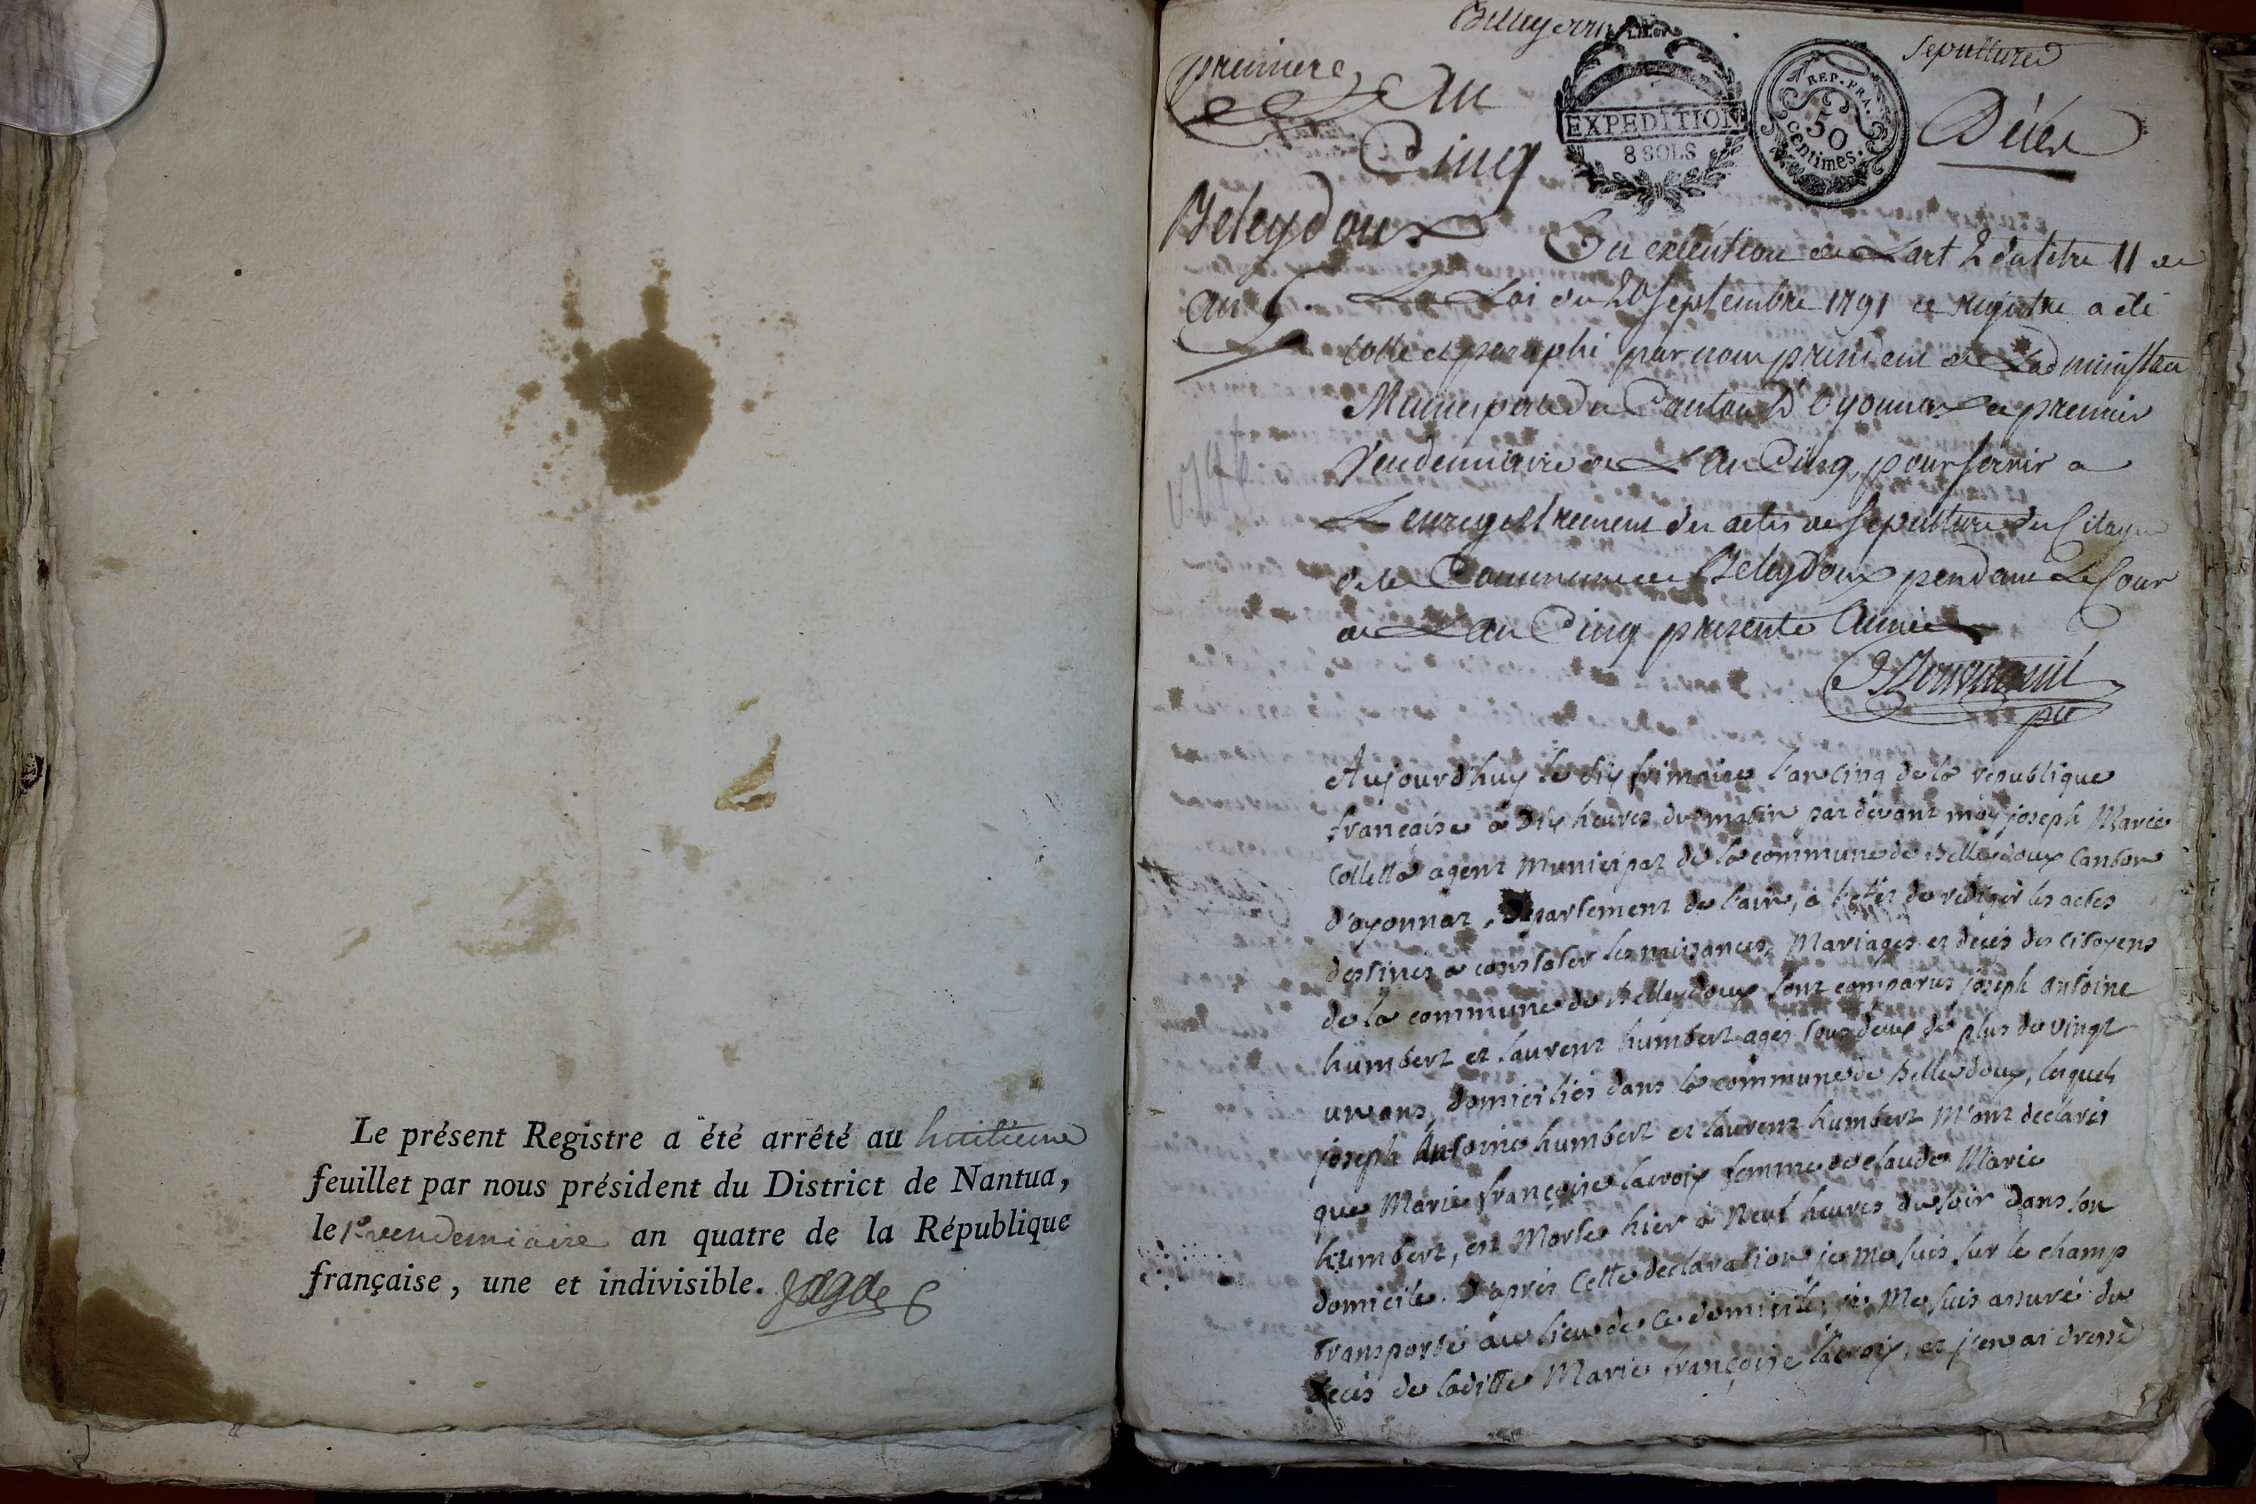 Le présent Registre a été arrêté au huitieme
feuillet par nous président du District de Nantua,
le 1er vendemiaire an quatre de la République
française, une et indivisible.
Sepulture
premiere
An
Cinq
EXPEDITION
8 SOLS
REP. FRA.
50
centimes.
Décès
Beleydoux
an 5.
En execution de Lart 2 du titre 11 de
La Loi du 20 septembre 1791 ce registre a été
Cotté et paraphé par nous president de Ladministra
Municipale du Canton D'oyonnax ce premier
Vendemiaire de L'an Cinq pour servir a
Lenregistrement des actes de sepulture des Citoyen
de la Commune de Beleydoux pendant Le Cour
de Lan Cinq presente année
Aujourd'huy le dix frimaire l'an cinq de la republique
française a dix heures du matin par devant moy joseph Marie
Colletta agent Municipal de la commune de Belleydoux Canton
d'oyonnaz, Departement de l'ain, a l'effet de rediger les actes
destinés a constater les naissances, Mariages et decès des citoyens
de la commune de Belleydoux sont comparus joseph antoine
humbert et laurent humbert ages tous deux de plus de vingt
un ans domiciliés dans la commune de Belledoux, lesquels
joseph Antoine humbert et laurent humbert M'ont declarés
que Marie françoise lacroix femme de claude Marie
humbert, est Morte hier a Neuf heures du soir dans son
domicile. D'après Cette declaration je me suis sur le champ
transporté au lieu de ce domicile, je Me suis assuré du
decès de laditte Marie françoise lacroix, et j'en ai dressé